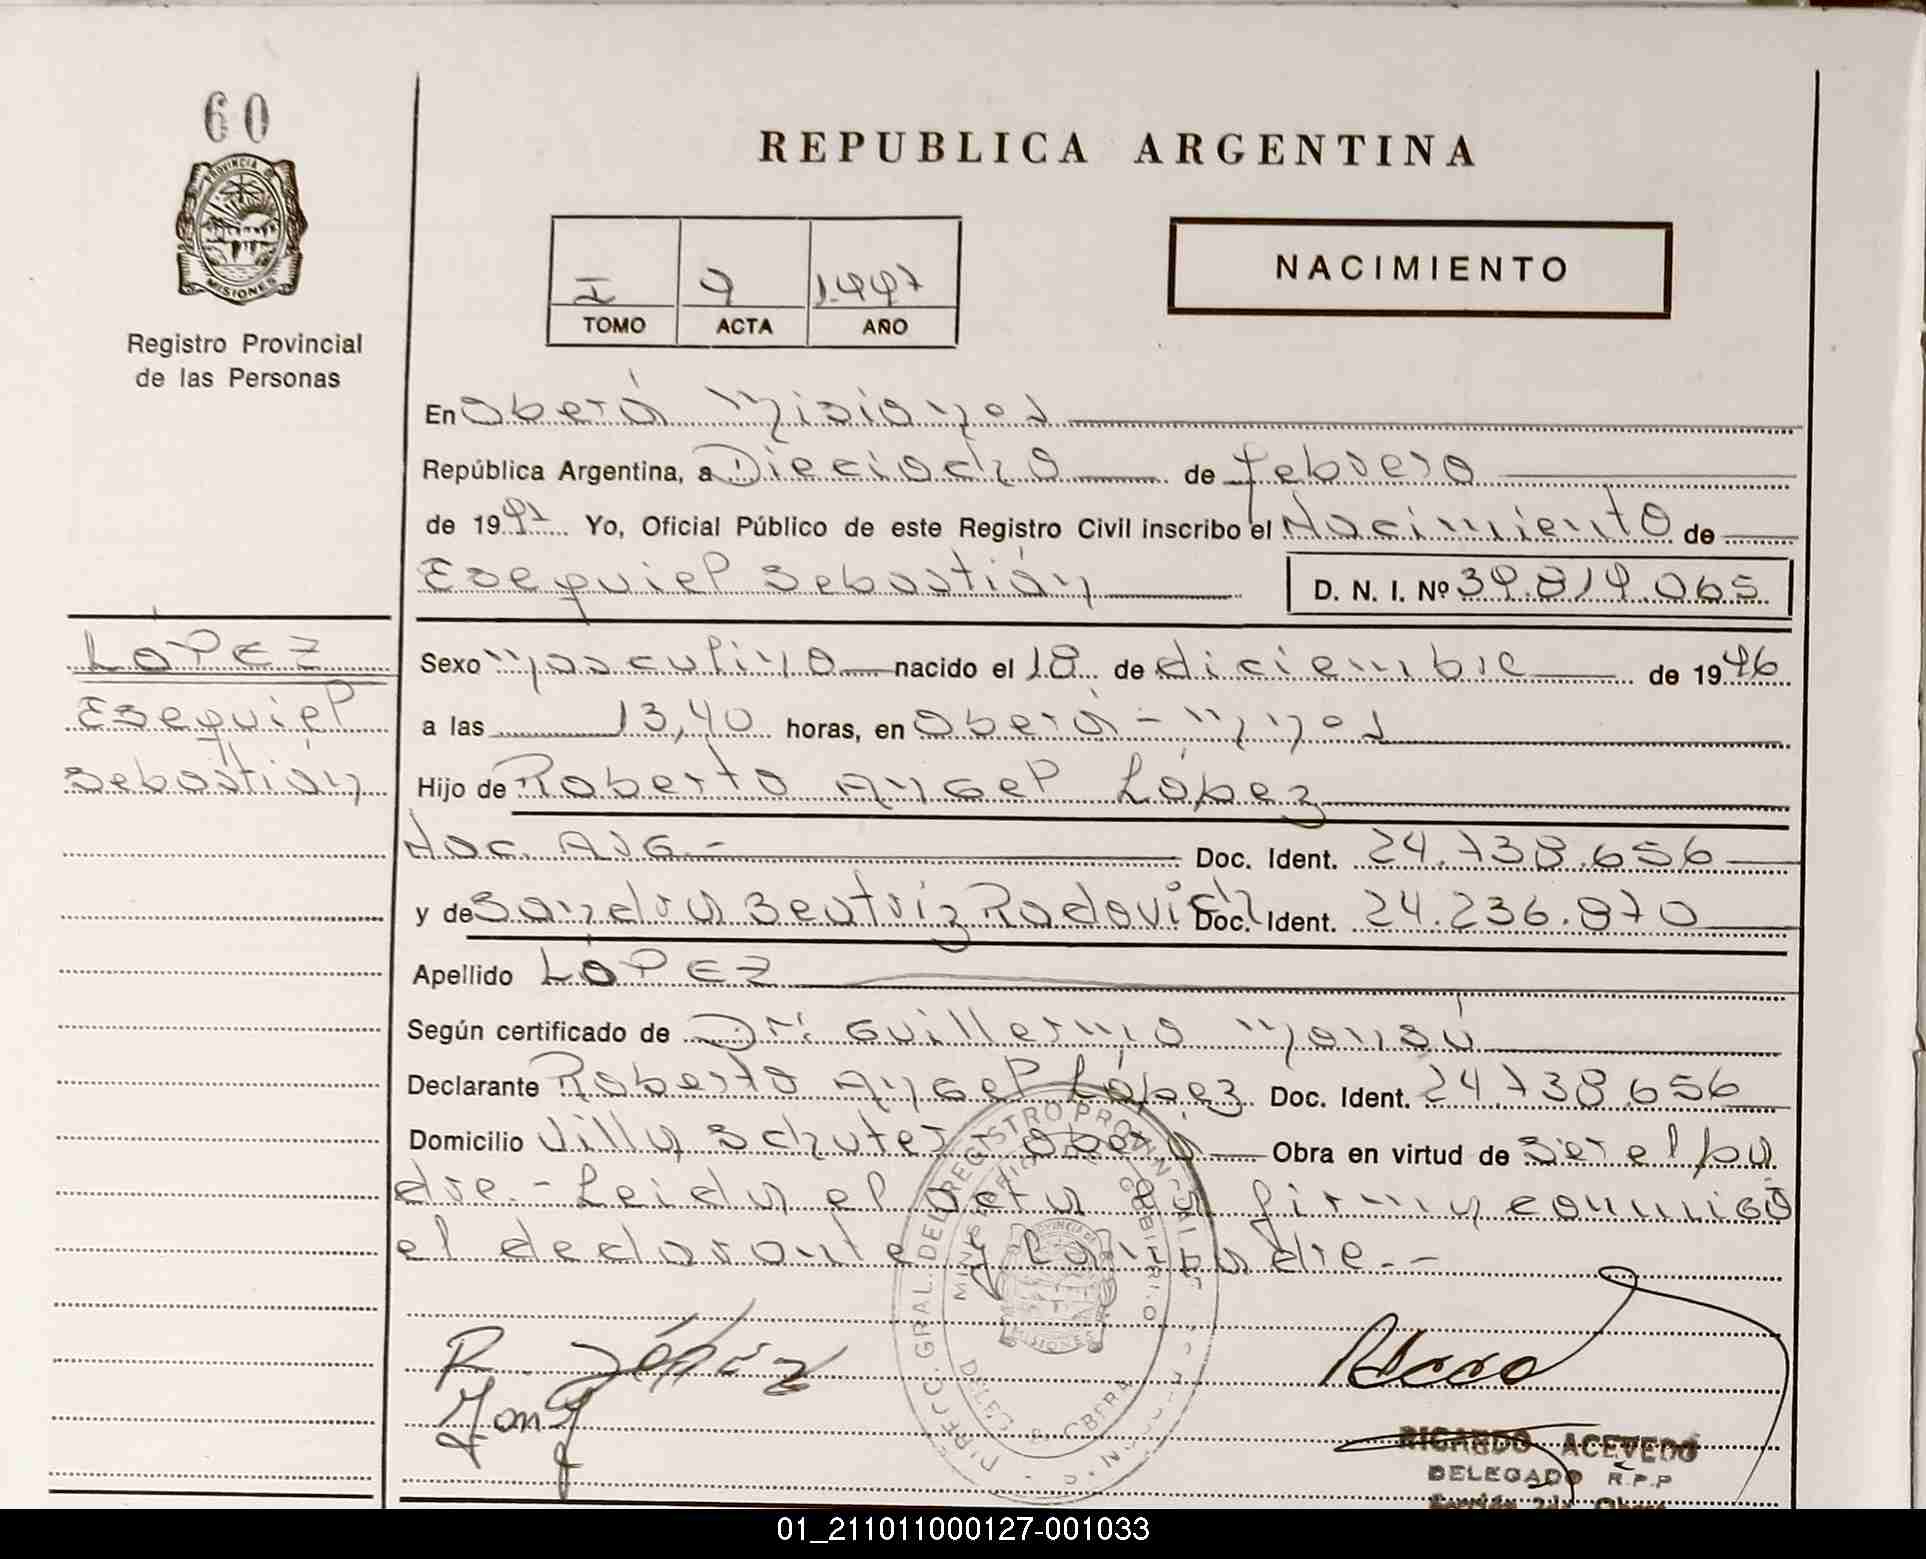 60
PROVINCIA DE
MISIONES
Registro Provincial
de las Personas
REPUBLICA ARGENTINA
I 9 1.997
TOMO ACTA AÑO
NACIMIENTO
En Oberá Misiones
República Argentina, a Dieciocho de febrero
de 1997 Yo, Oficial Público de este Registro Civil inscribo el Nacimiento de
Esequiel Sebastián D. N. I. Nº 39.819.065
LÓPEZ
Esequiel
Sebastián
Sexo masculino nacido el 18 de diciembre de 1996
a las 13,40 horas, en Oberá - Mnes
Hijo de Roberto Angel López
Nac. Arg.- Doc. Ident. 24.738.656
y de Sandra Beatriz Radovich Doc. Ident. 24.236.870
Apellido LÓPEZ
Según certificado de Dr. Guillermo Monsú
Declarante Roberto Angel López Doc. Ident. 24.738.656
Domicilio Villa Schuter - Oberá Obra en virtud de ser el pa
dre.- Leida el acta la firma conmigo
el declarante y la madre.-
DIRECC. GRAL. DEL REGISTRO PROVINCIAL DE
MISIONES
R. López
RICARDO ACEVEDO
DELEGADO R.P.P
Sección 2da Oberá
01_211011000127-001033